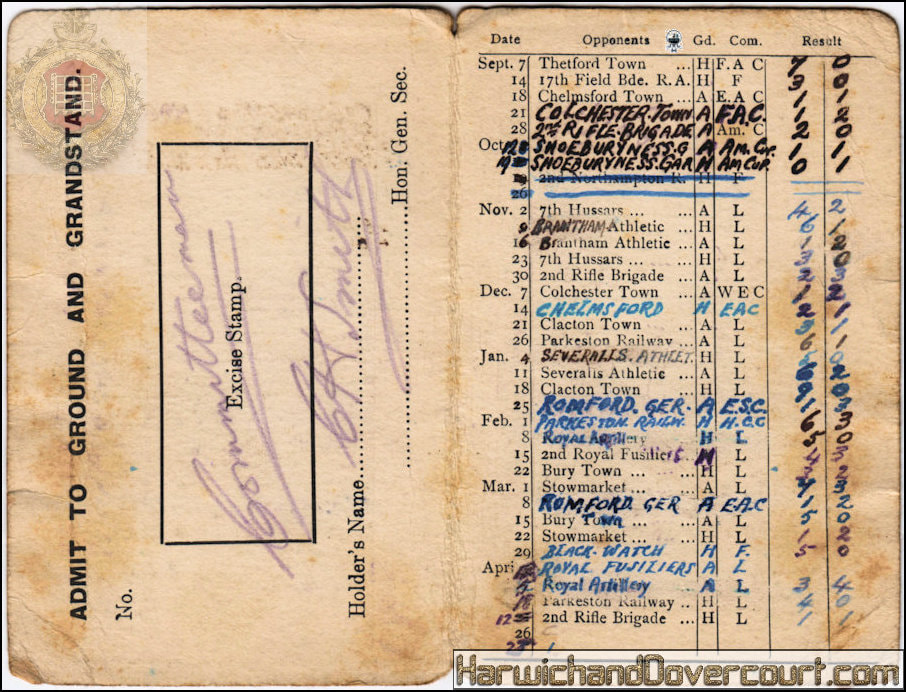 ADMIT TO GROUND AND GRANDSTAND.
No.
Committee man
Excise Stamp.
Holder's Name
C H Smith
Hon. Gen. Sec.
Date Opponents Gd. Com. Result
Sept. 7 Thetford Town ... H F. A C 7 0
14 17th Field Bde. R.A. H F 3 0
18 Chelmsford Town ... A E. A C 1 1
21 COLCHESTER. TOWN A F.A.C. 1 2
28 2ND RIFLE. BRIGADE A Am. C 2 0
Oct. 12 SHOEBURYNESS. G A AM. Cup 1 1
SHOEBURYNESS. GAR H AM CUP. 0 1
2nd Northampton R. H F
26
Nov. 2 7th Hussars ... ... A L 4 2
9 BRANTHAM Athletic ... H L 6 1
16 Brantham Athletic ... A L
23 7th Hussars ... ... H L
30 2nd Rifle Brigade ... A L
Dec. 7 Colchester Town ... A W E C
14 CHELMSFORD H EAC 2 1
21 Clacton Town ... A L
26 Parkeston Railway ... A L
Jan. 4 SEVERALLS. ATHLET. H L
11 Severalls Athletic ... A L
18 Clacton Town ... H L
25 ROMFORD. GER. A E.S.C.
Feb. 1 PARKESTON. RAILW. A H.C.C
8 Royal Artillery H L
15 2nd Royal Fusiliers H L
22 Bury Town ... ... H L
Mar. 1 Stowmarket ... ... A L
8 ROMFORD GER A E.A.C
15 Bury Town ... A L
22 Stowmarket ... ... H L
29 BLACK. WATCH H F. 5 0
April ROYAL FUSILIERS A L
Royal Artillery A L 3 4
Parkeston Railway .. H L 4 0
12 2nd Rifle Brigade ... H L 1 1
26
HarwichandDovercourt.com